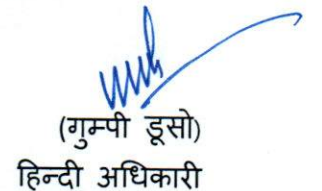 (गुम्पी डूसो)
हिन्दी अधिकारी